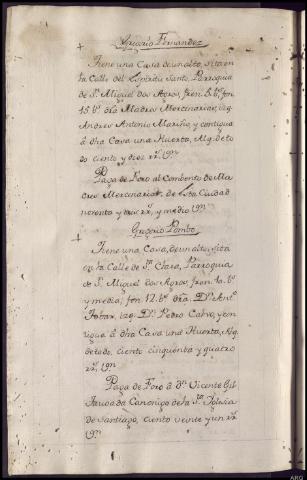 Gregorio Fernandez
Tiene una Casa de un alto, sita en
la Calle del Espiritu Santo, Parroquia
de Sn. Miguel dos Agros, fren.
15. bs. dra. Madres Mercenarias, izq.
Andres Antonio Mariño, y contigua
á dha Casa una Huerta, Alq. de to
do ciento y diez rr.
Paga de Foro al Combento de Ma
dres Mercenarias de esta Ciudad
noventa y seis rr. y medio
Gregorio Pombo
Tiene una Casa, de un alto, sita
en la Calle de Sta. Clara, Parroquia
de Sn. Miguel dos Agros, fren. 10. bs.
y media, fon. 12. bs. dra. Dn. Antº.
Tobar, izq. Dn. Pedro Calvo, y con
tigua á dha Casa una Huerta, Alq.
de todo, ciento cinquenta y quatro
rr.
Paga de Foro á Dn. Vicente Gil
Canonigo de la Sta. Iglesia
de Santiago, ciento veinte y un rr.
ARG